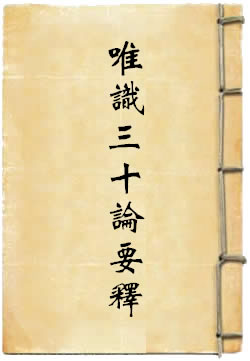 唯識三十論要釋